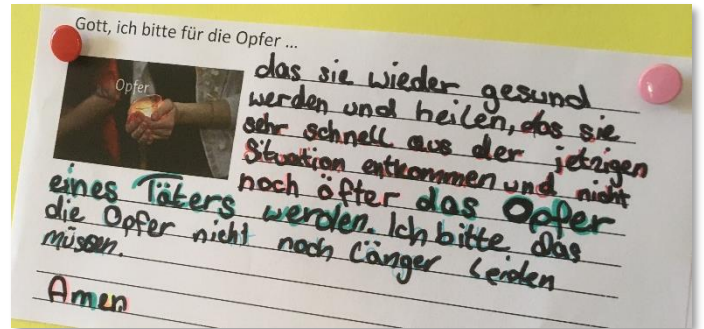 Gott, ich bitte für die Opfer ...
Opfer
das sie wieder gesund
werden und heilen, das sie
sehr schnell aus der jetzigen
Situation entkommen und nicht
noch öfter das Opfer
eines Täters werden. Ich bitte das
die Opfer nicht noch länger leiden
müssen.
Amen